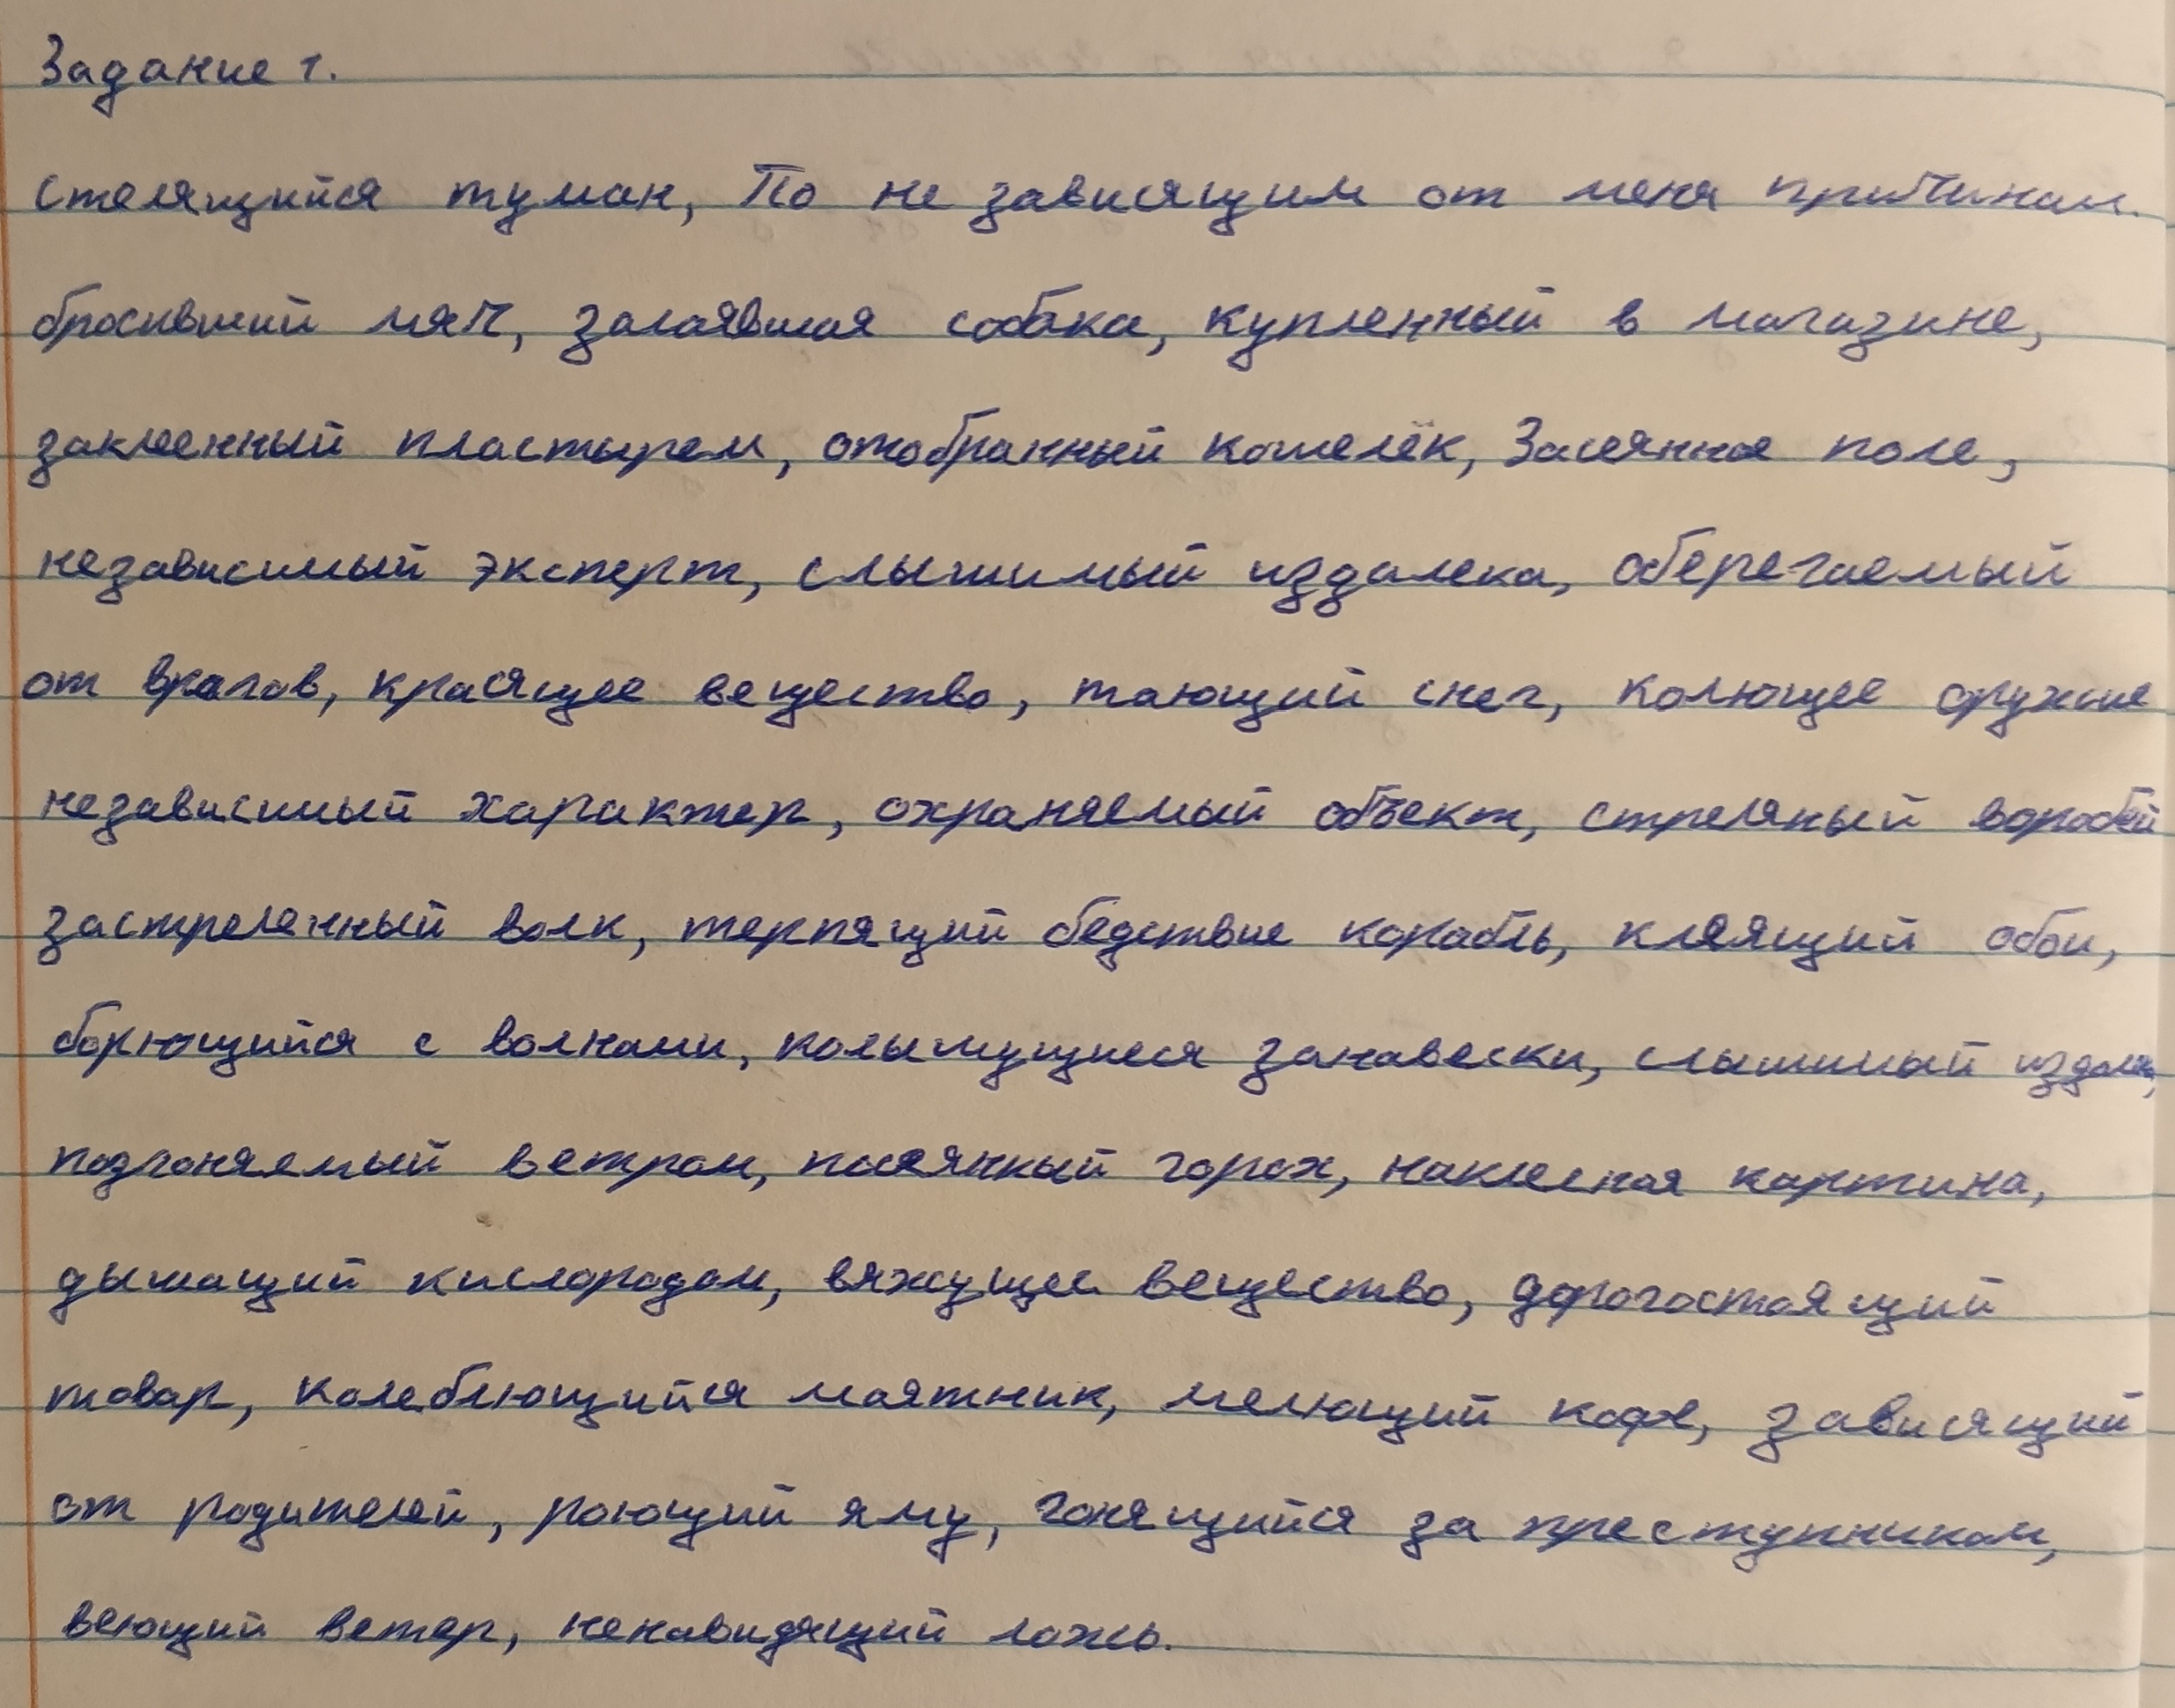 Задание 1.
стелящийся туман, По не зависящим от меня причинам.
бросивший мяч, залаявшая собака, купленный в магазине,
заклеенный пластырем, отобранный кошелёк, Засеянное поле,
независимый эксперт, слышимый издалека, оберегаемый
от врагов, красящее вещество, тающий снег, колющее оружие
независимый характер, охраняемый объект, стреляный воробей
застреленный волк, терпящий бедствие корабль, клеящий обои,
борющийся с волнами, колышущиеся занавески, слышимый
подгоняемый ветром, посеянный горох, наклееная картина,
дышащий кислородом, вяжущее вещество, дорогостоящий
товар, колеблющийся маятник, мелющий кофе, зависящий
от родителей, роющий яму, гонящийся за преступником,
веющий ветер, ненавидящий ложь.